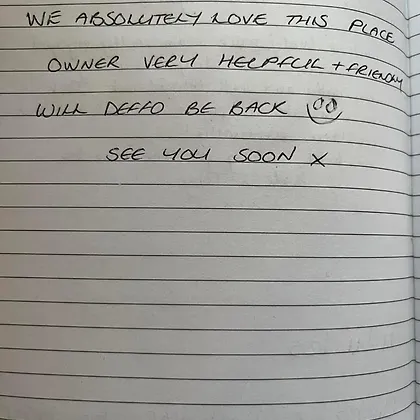 WE ABSOLUTELY LOVE THIS PLACE
OWNER VERY HELPFUL + FRIENDLY
WILL DEFFO BE BACK
SEE YOU SOON X